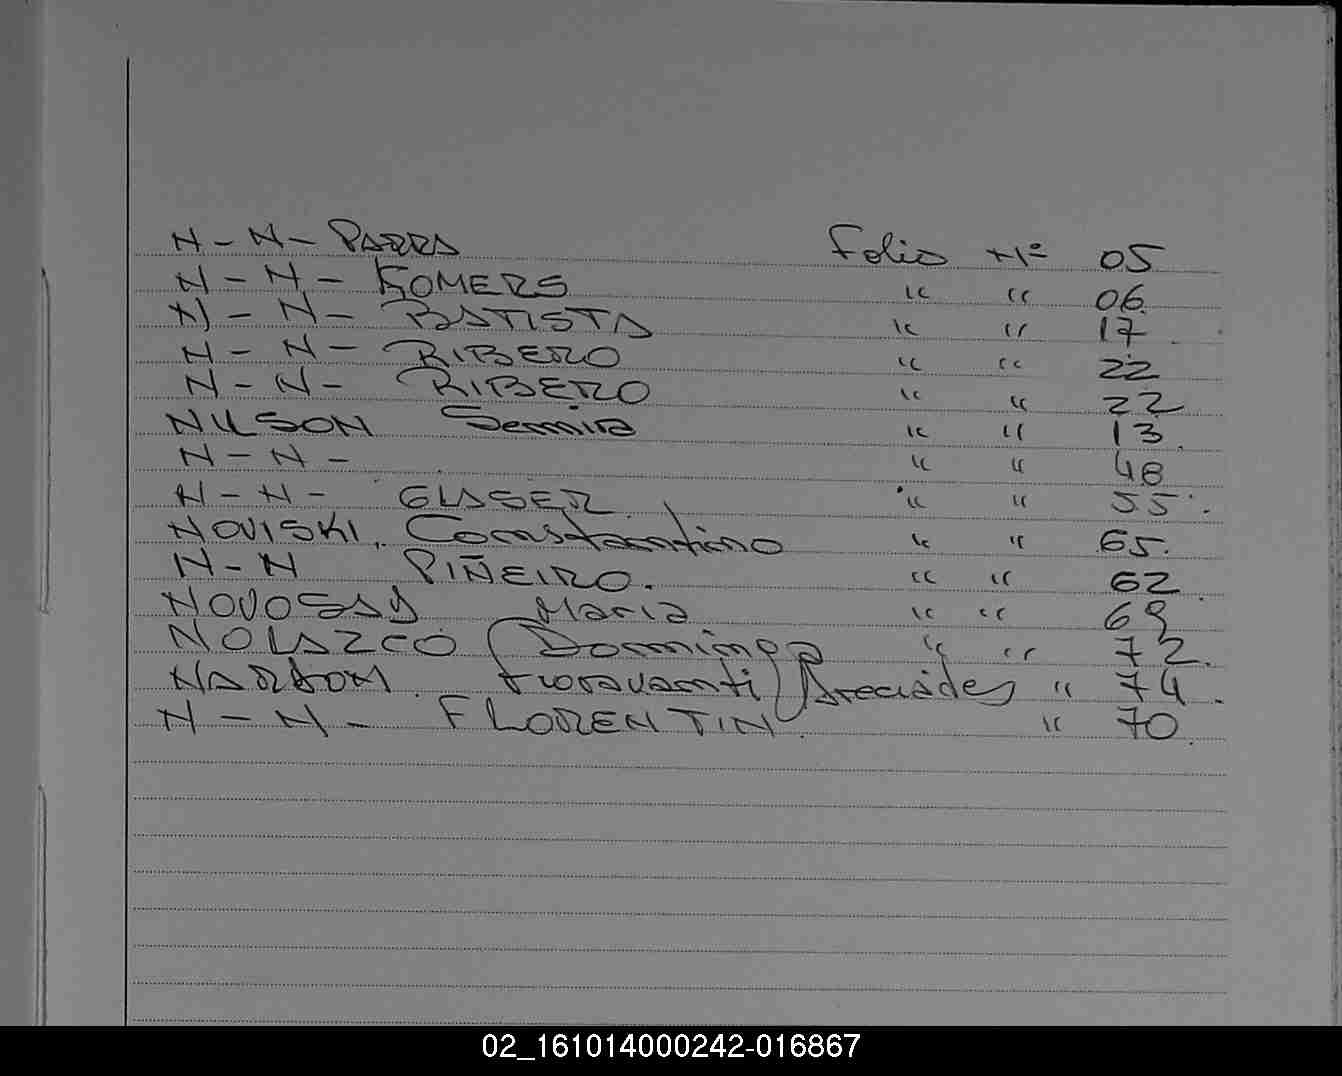 N - N - PARRA Folio Nº 05
N - N - GOMERS " " 06
N - N - BATISTA " " 17
N - N - RIBERO " " 22
N - N - RIBERO " " 22
NILSON Semira " " 13
N - N - " " 48
N - N - GLASER " " 55
NOVISKI, Constantino " " 65
N - N PIÑEIRO. " " 62
NOVOSAD Maria " " 69
NOLAZCO Domingo " " 72
NARDON Fioravanti " 74
N - N - FLORENTIN " 70
02_161014000242-016867